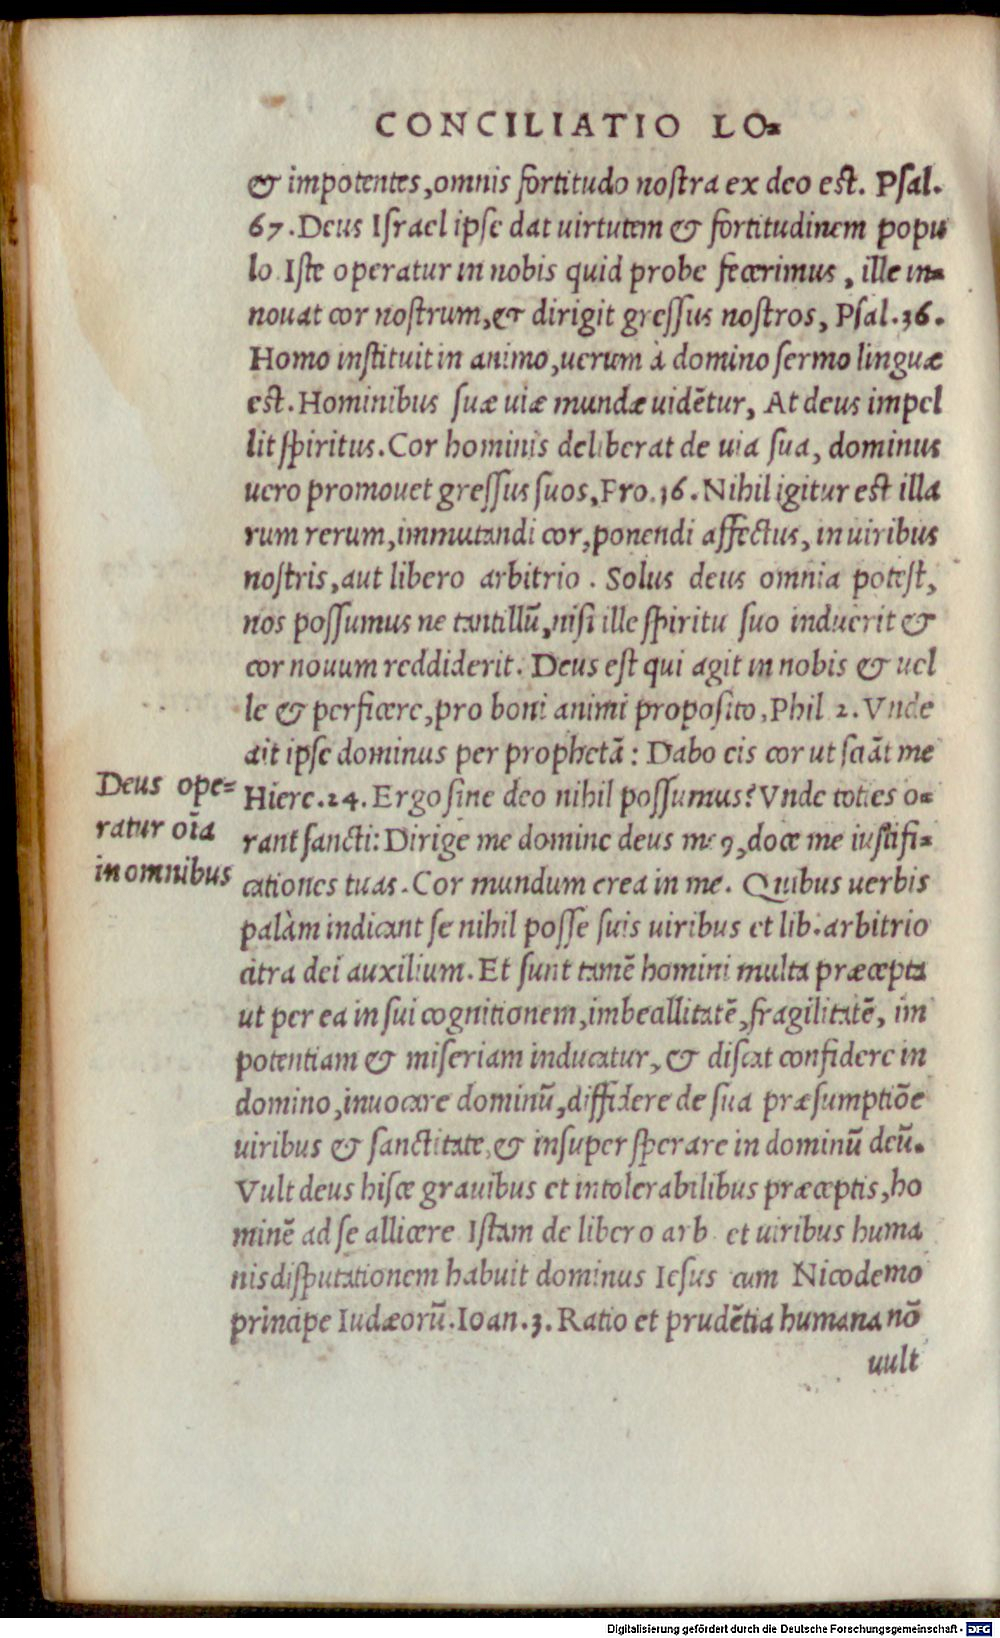 CONCILIATIO LO-
& impotentes, omnis fortitudo nostra ex deo est. Psal.
67. Deus Israel ipse dat uirtutem & fortitudinem popu
lo Iste operatur in nobis quid probe fecerimus, ille in-
nouat cor nostrum, & dirigit gressus nostros, Psal. 36.
Homo instituit in animo, uerum à domino sermo linguæ
est. Hominibus suæ uiæ mundæ uidētur, At deus impel
lit spiritus. Cor hominis deliberat de uia sua, dominus
uero promouet gressus suos, Pro. 16. Nihil igitur est illa
rum rerum, immutandi cor, ponendi affectus, in uiribus
nostris, aut libero arbitrio. Solus deus omnia potest,
nos possumus ne tantillū, nisi ille spiritu suo induerit &
cor nouum reddiderit. Deus est qui agit in nobis & uel
le & perficere, pro boni animi proposito, Phil 2. Vnde
ait ipse dominus per prophetā: Dabo eis cor ut sciāt me
Deus ope-
ratur oīa
in omnibus
Hiere. 24. Ergo sine deo nihil possumus? Vnde toties o-
rant sancti: Dirige me domine deus meꝰ, doce me iustifi-
cationes tuas. Cor mundum crea in me. Quibus uerbis
palàm indicant se nihil posse suis uiribus et lib. arbitrio
citra dei auxilium. Et sunt tamē homini multa præcepta
ut per ea in sui cognitionem, imbecillitatē, fragilitatē, im
potentiam & miseriam inducatur, & discat confidere in
domino, inuocare dominū, diffidere de sua præsumptiōe
uiribus & sanctitate, & insuper sperare in dominū deū.
Vult deus hisce grauibus et intolerabilibus præceptis, ho
minē ad se allicere Istam de libero arb. et uiribus huma
nis disputationem habuit dominus Iesus cum Nicodemo
principe Iudæorū. Ioan. 3. Ratio et prudētia humana nō
uult
Digitalisierung gefördert durch die Deutsche Forschungsgemeinschaft - DFG